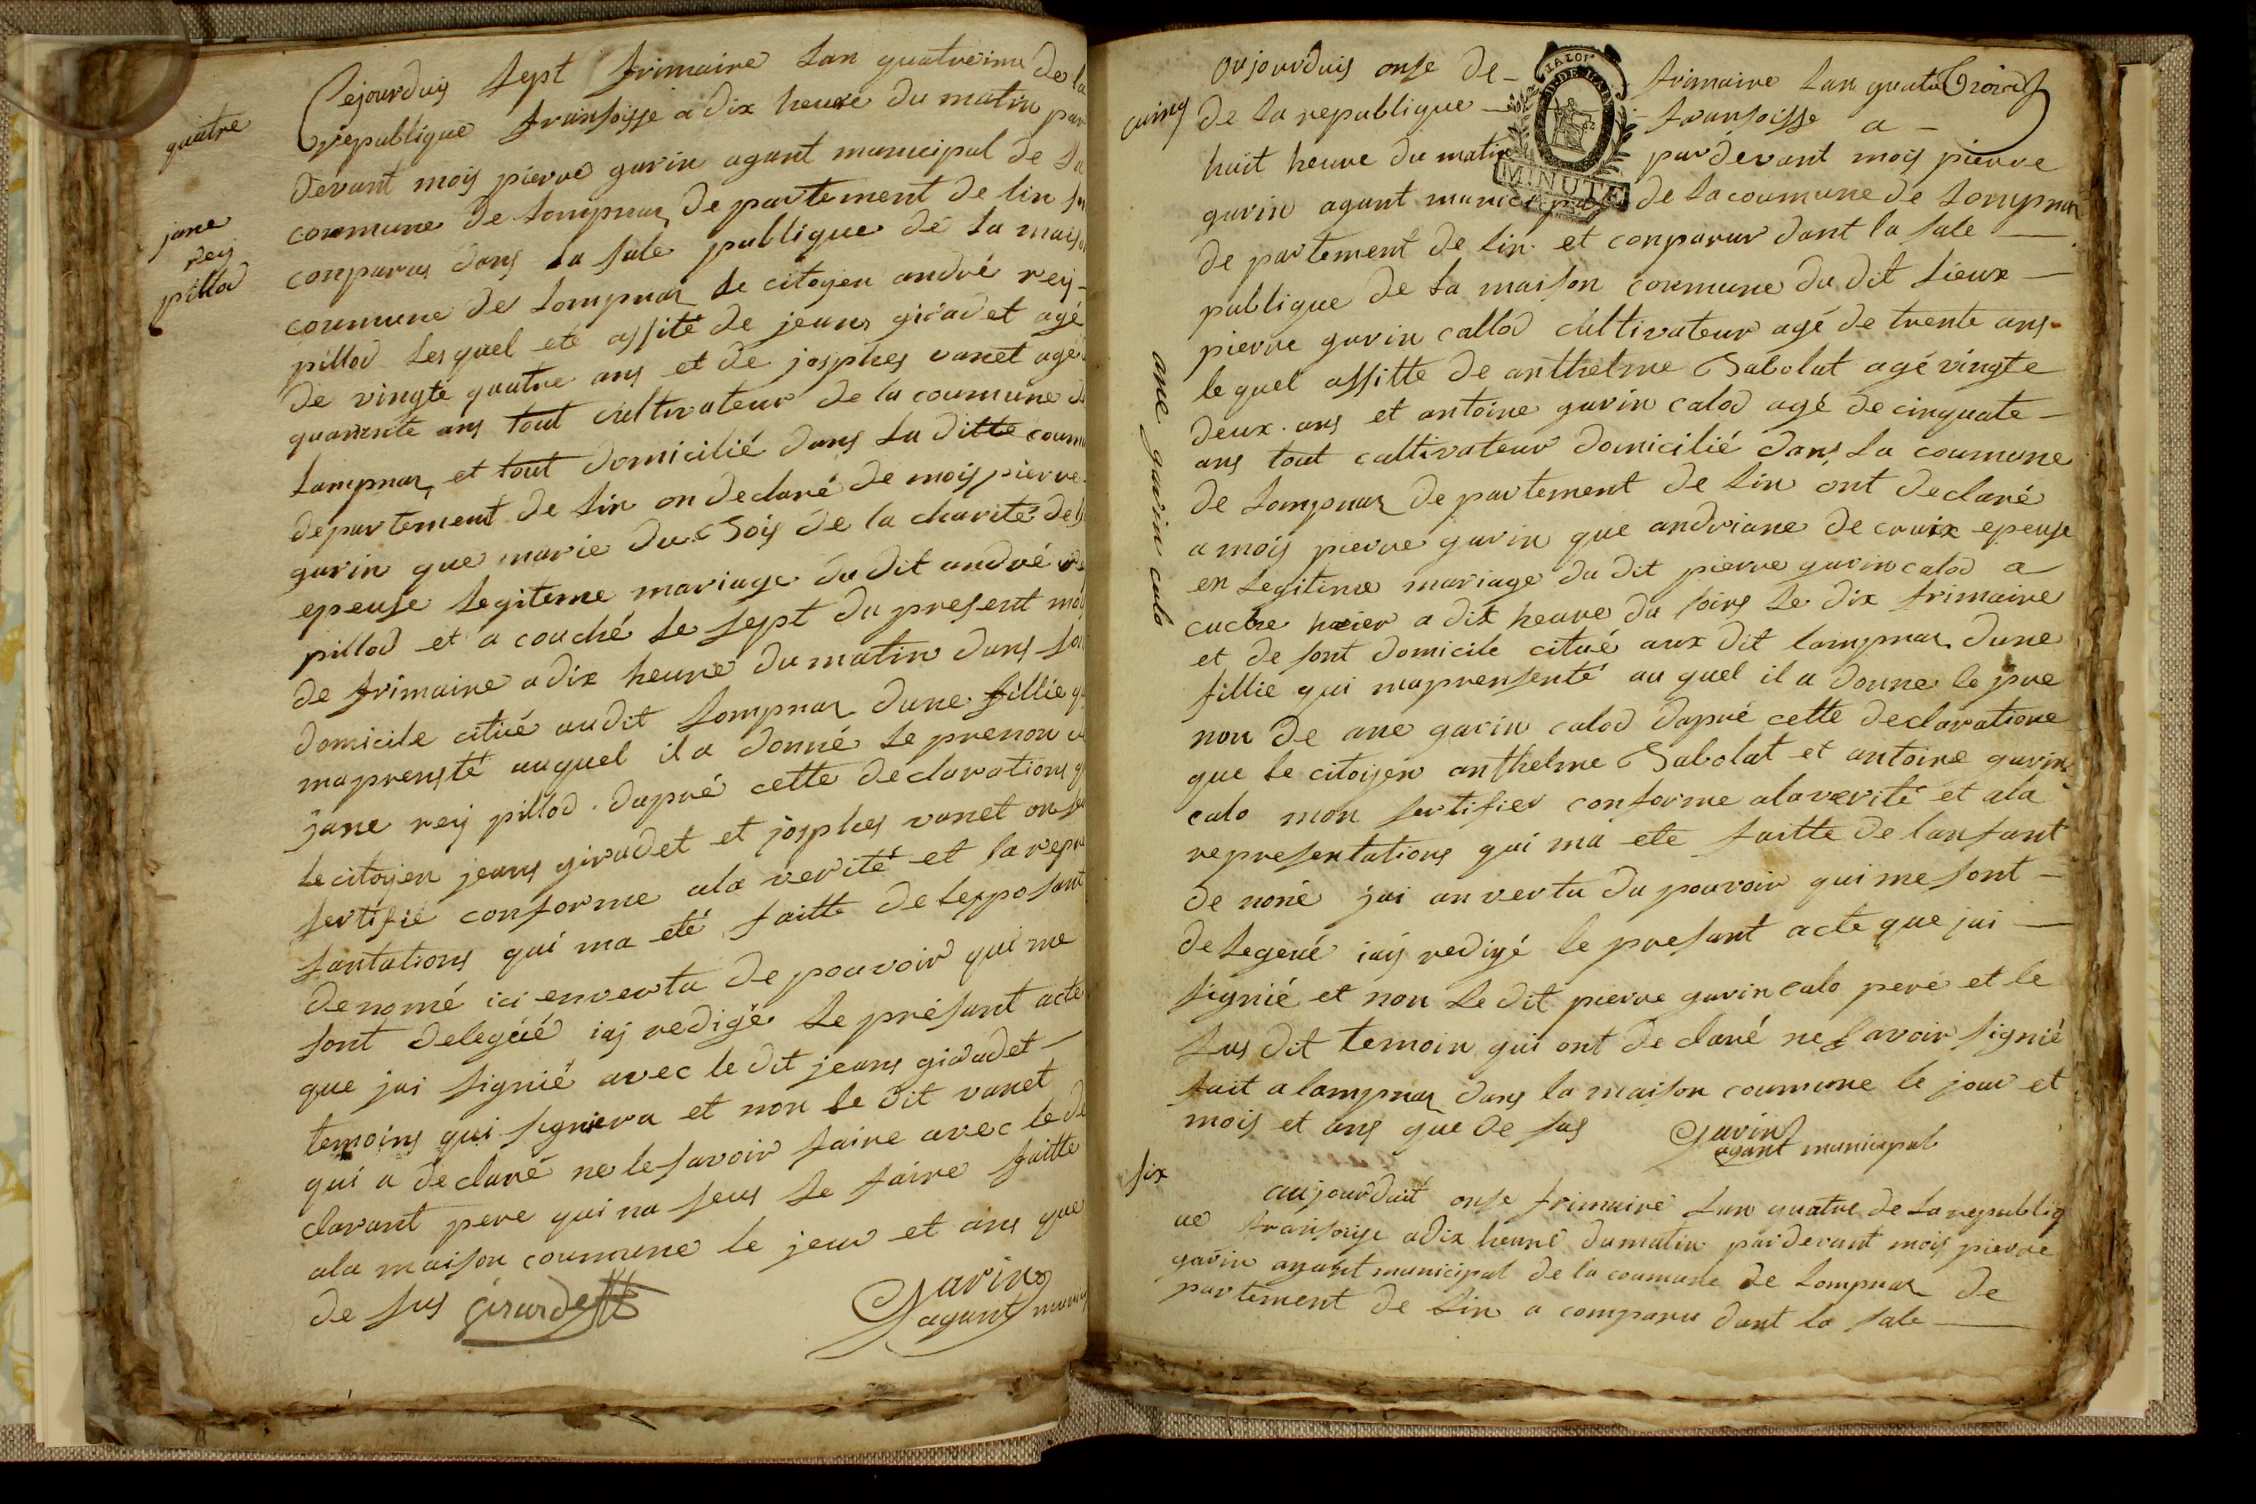 quatre
jane
rey
pillod
Cejourduis sept frimaire lan quatreime de la
republique fransoisse a dix heure du matin par
devant mois pierre garin agant municipal de la
commune de lompnas departement de lin
conparus dans la sale publique de la maison
coumune de lompnas le citoyen andré rey
pillod lesquel eté assité de jeans giradet agé
de vingte quatre ans et de josphes vanet agé
quarente ans tout cultivateur de la coumune de
lampnas et tout domicilié dans la ditte coum
departement de lin on declaré de mois pierre
garin que marie du Bois de la charité
epeuse legiteme mariage du dit andré
pillod et a couché le sept du present mois
de frimaire a dix heure du matin dans son
domicile citué audit lompnas dune fillie
maprensté auquel il a donné le prenon
jane rey pillod dapré cette declarations
le citoyen jeans giradet et josphes vanet on
sertifié conforme ala verité et la repre
santations qui ma eté faitte de lesposant
denomé ici envertu de pouvoir qui me
sont delegéé iaj redigé le présant acte
que jai signié avec le dit jeans giradet
temoins qui signiera et non le dit vanet
qui a declaré ne le savoir faire avec le de
clarant pere qui na seus le faire faitte
ala maison coumune le jeur et ans que
de sus Girardett
Garin
agant munici
Troices
cuing
ane garin calo
Oujourduis onse de frimaire lan quatre
de la republique fransoisse a
huit heure du matin pardevant mois pierre
garin agant municipal de la coumune de lompnas
departement de lin et conparus dant la sale
publique de la maison commune du dit lieux
pierre garin callod cultivateur agé de trente ans
lequel assitte de anthelme Babolat agé vingte
deux ans et antoine garin calod agé de cinquate
ans tout cultivateur domicilié dans la coumune
de lompnas departement de lin ont declaré
a mois pierre garin que andriane decroix epeuse
en legitime mariage du dit pierre garin calod a
cuche haier a dix heure du soirs le dix frimaire
et de sont domicile citué aux dit lompnas dune
fillie qui maprensenté au quel il a donne le pre
non de ane garin calod dapré cette declaratione
que le citoyen anthelme Babolat et antoine garin
calo mon sertifier conforme ala verité et ala
representations qui ma ete faitte de lanfant
de noné jai an vertu du pouvoir qui me sont
delegeué iaij redigé le presant acte que jai
signié et non le dit pierre garin calo peré et le
sus dit temoin qui ont declaré ne savoir signié
fait a lampnas dans la maison coumune le jour et
mois et ans que de sus
Garin
agant municipal
six
aujourduit onse frimaire lan quatre de la republiq
ue fransoise adix heure dumatin pardevant mois pierre
garin agant municipal de la coumune de lompnas de
partement de lin a comparu dant la sale
MINUTE